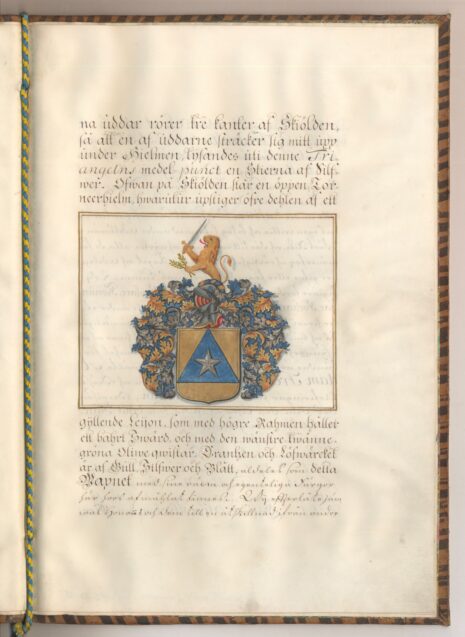 na uddar rörer tre kanter af Skiölden,
så att en af uddarne sträcker sig mitt upp
under Hielmen, lysandes uti denne Tri-
angelns medel punct en Stierna af Silf-
wer. Ofwan på Skiölden står en öppen Tor-
neerhielm, hwarutur upstiger öfre dehlen af ett
gyllende Leijon, som med högre Rahmen håller
ett bahrt Swärd, och med den wänstre twänne
gröna Olive qwistar. Crantzen och Löfwärcket
är af Gull, Silfwer och Blått, aldeles som detta
Wapnet med sine rätta och egenteliga Färgor
här hos afmåhlat finnes.